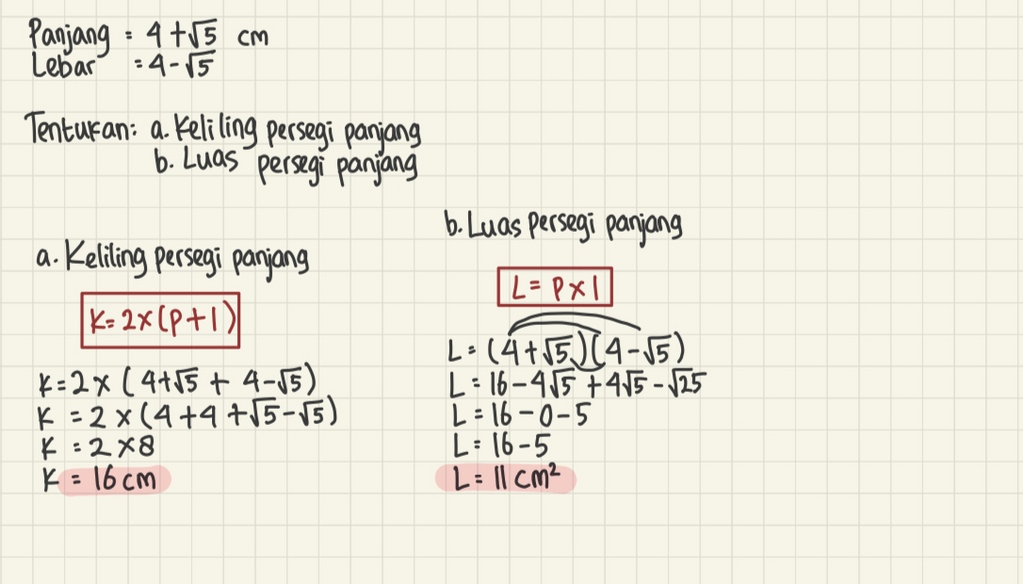 Panjang = 4+√5 cm
Lebar = 4-√5
Tentukan: a. Keliling persegi panjang
b. Luas persegi panjang
a. Keliling persegi panjang
K= 2x(p+l)
K=2x (4+√5 + 4-√5)
K = 2 x(4+4 +√5-√5)
K = 2 x8
K = 16 cm
b. Luas persegi panjang
L= p x l
L= (4+√5)(4-√5)
L= 16-4√5 +4√5-√25
L= 16-0-5
L= 16-5
L= 11 cm²